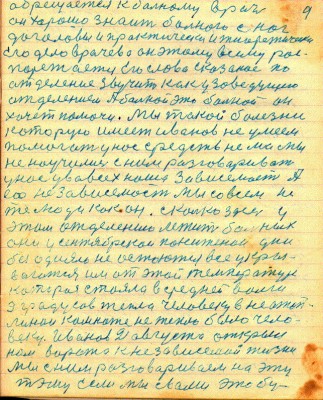 обращается к больному врач 9
он хорошо знает больного с ног
до головы и практически и теоретически
его дело врачево он этому всему рас-
поряжает его слова сказаное по
отделению звучит как у заведующего
отделением а больной это больной он
хочет помочи. Мы такой болезни
которую имеет иванов не умеем
помогат у нас средств не ма мы
не научилис с ним разговариват
у нас у вас их наша зависемост а
его не зависемост мы совсем не
те люди как он. сколко здес у
этом отделению лежит болных
они у сентябрской
бы одново не остаются все укры-
ваются им от этой температуре
которая стояла в средней
3 градусов тепла человеку в неотоп-
линой комнате не тепло было чело-
веку. Иванов 2 августа открыл
нам ворота к независемой жизни
мы с ним разговариваем на эту
тэму если мы с вами это бу-